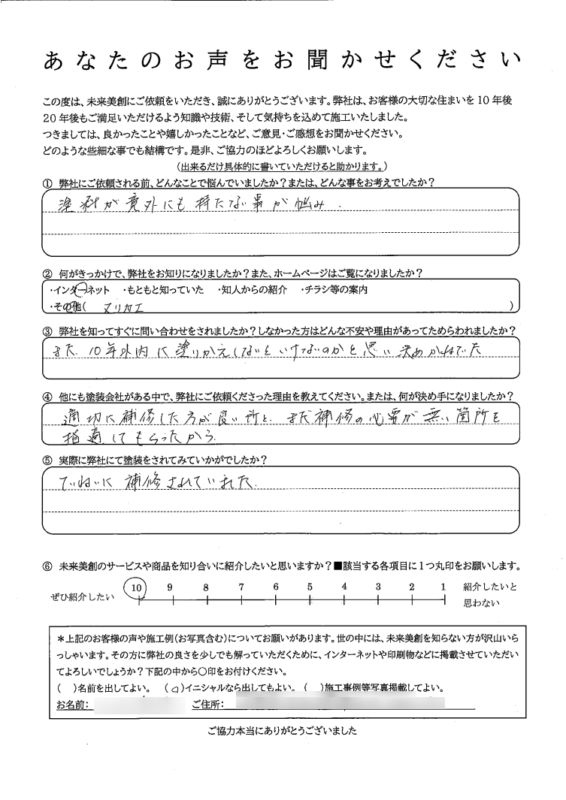 あなたのお声をお聞かせください
この度は、未来美創にご依頼をいただき、誠にありがとうございます。弊社は、お客様の大切な住まいを10年後
20年後もご満足いただけるよう知識や技術、そして気持ちを込めて施工いたしました。
つきましては、良かったことや嬉しかったことなど、ご意見・ご感想をお聞かせください。
どのような些細な事でも結構です。是非、ご協力のほどよろしくお願いします。
(出来るだけ具体的に書いていただけると助かります。)
① 弊社にご依頼される前、どんなことで悩んでいましたか？または、どんな事をお考えでしたか？
塗料が意外にも持たない事が悩み.
② 何がきっかけで、弊社をお知りになりましたか？また、ホームページはご覧になりましたか？
・インターネット ・もともと知っていた ・知人からの紹介 ・チラシ等の案内
・その他( ヌリカエ )
③ 弊社を知ってすぐに問い合わせをされましたか？しなかった方はどんな不安や理由があってためらわれましたか？
また、10年以内に塗りかえしないといけないのかと思い決めかねてた
④ 他にも塗装会社がある中で、弊社にご依頼くださった理由を教えてください。または、何が決め手になりましたか？
適切に補修した方が良い所と、また補修の必要が無い箇所を
指適してもらったから.
⑤ 実際に弊社にて塗装をされてみていかがでしたか？
ていねいに補修されていました.
⑥ 未来美創のサービスや商品を知り合いに紹介したいと思いますか？■該当する各項目に1つ丸印をお願いします。
ぜひ紹介したい 10 9 8 7 6 5 4 3 2 1 紹介したいと
思わない
＊上記のお客様の声や施工例(お写真含む)についてお願いがあります。世の中には、未来美創を知らない方が沢山いら
っしゃいます。その方に弊社の良さを少しでも解っていただくために、インターネットや印刷物などに掲載させていただい
てよろしいでしょうか？下記の中から○印をお付けください。
( )名前を出してよい。 (○)イニシャルなら出してもよい。 ( )施工事例等写真掲載してよい。
お名前： ご住所：
ご協力本当にありがとうございました